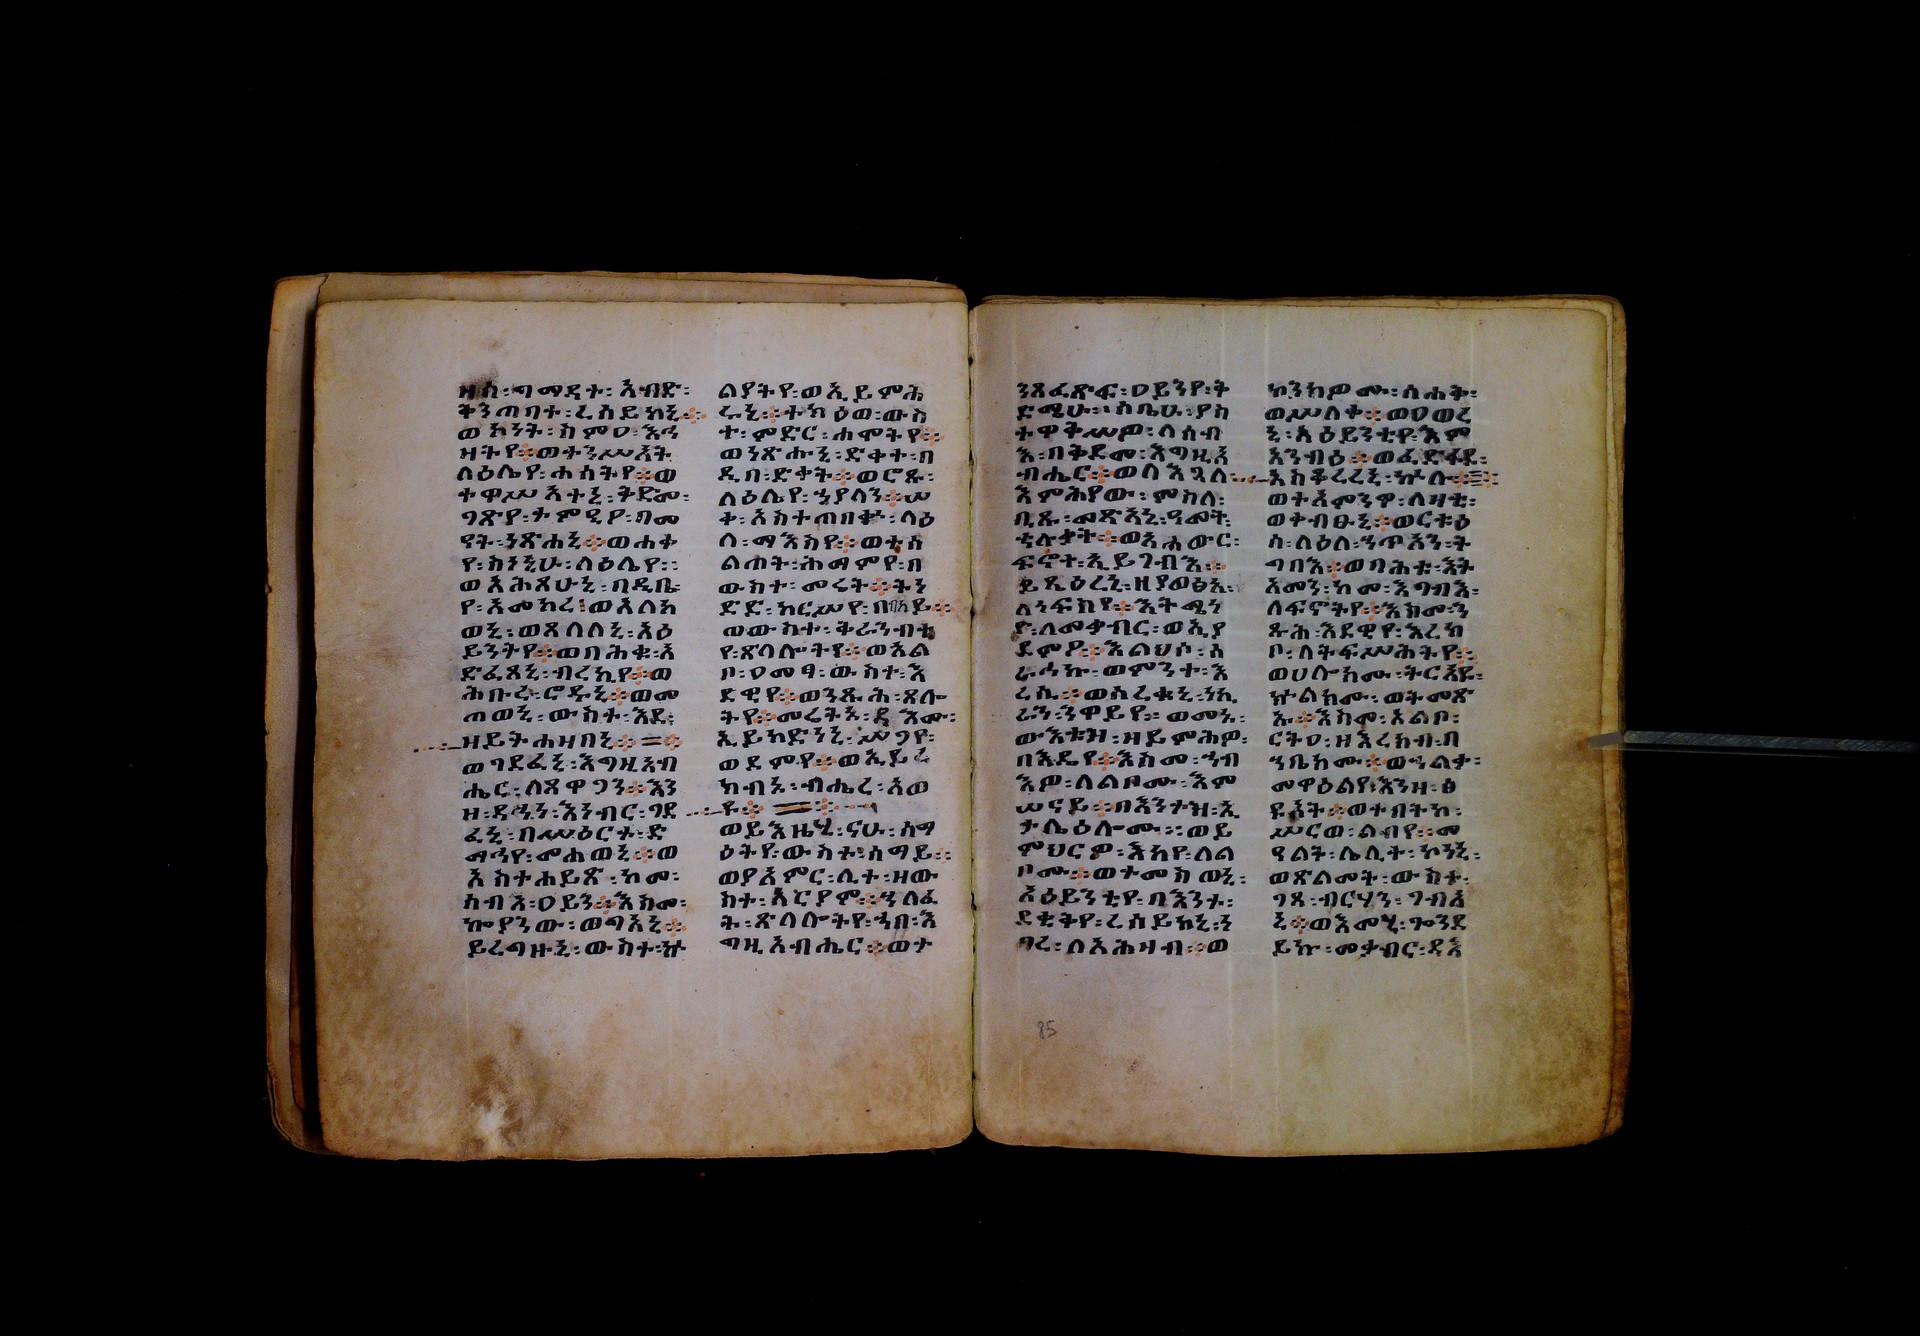 ዘሰ፡ግማዳተ፡አብድ፡
ቅንጠበተ፡ረሰይከኒ፨
ወኮንት፡ከምዐ፡እኅ
ዛትየ፨ወተንሥአት
ለዕሌየ፡ሐሰትየ፨ወ
ተዋሥአተኒ፡ቅድመ፡
ገጽየ፡ተምዒዖ፡በመ
ዓት፡ንጽሐኒ፨ወሐቀ
የ፡ስነኒሁ፡ላዕሌየ፡፡
ወአሕጸሁኒ፡በዲቤ
የ፡እመከረ፡ወአለከ
ወኒ፡ወጸለለኒ፡አዕ
ይንትየ፨ወበሕቁ፡አ
ድፈጸኒ፡ብረኪየ፨ወ
ሕቡረ፡ሮዱኒ፨ወመ
ጠወኒ፡ውስተ፡እደ፡
ዘይትሐዘበኒ፨
ወገደፈኒ፡እግዚአብ
ሔር፡ለጸዋጋን፨እን
ዘ፡ዳኅን፡እነብር፡ገደ
ፈኒ፡በሥዕርተ፡ድ
ማኅየ፡መሐወኒ፨ወ
አስተሐይጽ፡ከመ፡
ሰብእ፡ዐይን፨እስመ፡
ኰያንው፡ወግአኒ፨
ይረግዙኒ፡ውስተ፡ኵ
ልያትየ፡ወኢይምሕ
ሩኒ፨ተክዕወ፡ውስ
ተ፡ምድር፡ሐሞትየ፨
ወነጽሑኒ፡ድቀተ፡በ
ዲበ፡ድቀት፨ወሮጹ፡
ለዕሌየ፡ኃያላን፨ሠ
ቀ፡አስተጠበቁ፡ላዕ
ለ፡ማእስየ፨ወተሰ
ልጠት፡ሕማምየ፡በ
ውስተ፡መሬት፨ትነ
ድድ፡ከርሥየ፡በብካይ፨
ወውስተ፡ቅራንብቲ
የ፡ጽላሎትየ፨ወአል
ቦ፡ዐመፃ፡ውስተ፡እ
ደዊየ፨ወንጹሕ፡ጸሎ
ትየ፨መሬትኑ፡ዳእሙ፡
ኢይከድነኒ፡ሥጋየ፡
ወደምየ፨ወኢይረ
ክብኑ፡ብሔረ፡አወ
ዩ፨
ወይእዜሂ፡ናሁ፡ሰማ
ዕትየ፡ውስተ፡ሰማይ፨
ወያአምር፡ሊተ፡ዘው
ስተ፡አርያም፨ኃለፈ
ት፡ጽላሎትየ፡ኀበ፡እ
ግዚአብሔር፨ወተ
ንጸፈጽፍ፡ዐይንየ፡ቅ
ድሜሁ፡፡ሰቤሁ፡ያስ
ተዋቅሥዖ፡ላሰብ
እ፡በቅድመ፡እግዚአ
ብሔር፨ወለእጓለ፡
እምሕያው፡ምስለ፡
ቢጹ፡መጽአኒ፡ዓመት፡
ኁሉቃት፨ወአሐውር፡
ፍኖተ፡ኢይገብእ፨
ይጼዕረኒ፡ዘያወፅእ፡
ለነፍስየ፨እትሜነ
ዮ፡ለመቃብር፡ወኢያ
ደምዖ፨እልህሶ፡ለ
ራኃኩ፡ወምንተ፡እ
ረሲ፨ወሰረቁኒ፡ነኪ
ራን፡ንዋይየ፡፡ወመኑ፡
ውእቱዝ፡ዘይምሕዖ፡
በእዴየ፨እስመ፡ኀብ
እዖ፡ለልቦሙ፡እም
ሠናይ፨በእንተዝ፡ኢ
ታሌዕሎሙ፡፡ወይ
ምህርዎ፡እከየ፡ለል
ቦሙ፨ወተመስወኒ፡
አዕይንቲየ፡በእንተ፡
ደቂቅየ፡ረሰይከኒ፡ነ
ግረ፡ለአሕዛብ፨ወ
ኮንክዎሙ፡ሰሐቅ፡
ወሥላቀ፨ወዐወረ
ኒ፡አዕይንቲየ፡እም
አንብዕ፨ወፈድፋደ፡
አስቆረረኒ፡ኵሉ፨
ወተአምንዋ፡ለዛቲ፡
ወቀብፁኒ፨ወርቱዕ
ሰ፡ለዕለ፡ኃጥአን፡ት
ግበእ፨ወባሕቱ፡እት
አመን፡ከመ፡እግብእ፡
ለፍኖትየ፨እስመ፡ን
ጹሕ፡እደዊየ፡እረክ
ቦ፡ለትፍሥሕትየ፨
ወሀሎከሙ፡ትርአዩ፡
ኵልክሙ፡ወትመጽ
ኡ፨እስመ፡አልቦ፡
ርትዐ፡ዘእረክብ፡በ
ኀቤክሙ፨ወኀልቃ፡
መዋዕልየ፡እንዘ፡ፅ
ዩአት፨ወተበትከ፡
ሥርወ፡ልብየ፡፡መ
ዓልተ፡ሌሊተ፡ኮነኒ፡
ወጽልመት፡ውስተ፡
ገጸ፡ብርሃን፡ገብአ
ኒ፨ወእመሂ፡ጐንደ
ይኩ፡መቃብር፡ዳእ
85